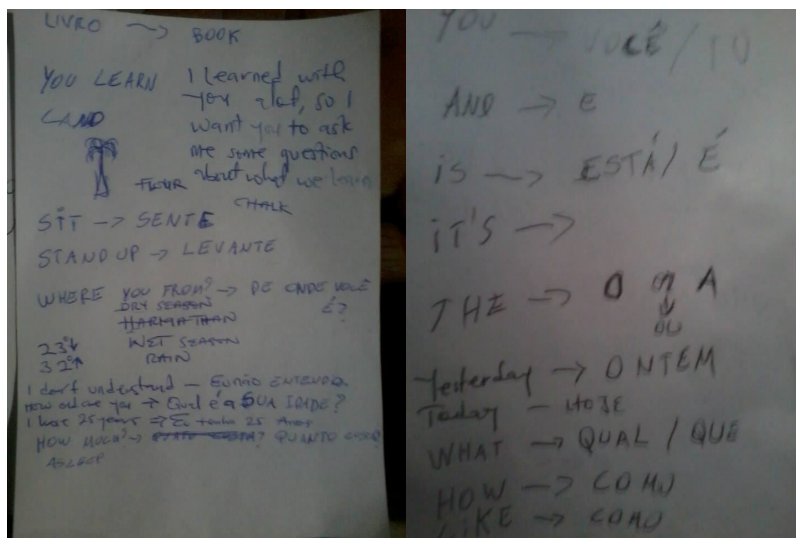 LIVRO → BOOK
YOU LEARN
LAND
I learned with
you alot, so I
want you to ask
me some questions
about what we learn
FLOUR
CHALK
SIT → SENTE
STAND UP → LEVANTE
WHERE YOU FROM? → DE ONDE VOCÊ
É?
DRY SEASON
HARMATHAN
23°↓ WET SEASON
32°↑ RAIN
I don't understand — EU NÃO ENTENDO
How old are you → Qual é a SUA IDADE?
I have 25 years → Eu tenho 25 Anos
HOW MUCH? → QUANTO CUSTA
ASLEEP
YOU → VOCÊ / TU
AND → E
iS → ESTÁ / É
iT'S →
THE → O A
OU
Yesterday → ONTEM
Today — HOJE
WHAT → QUAL / QUE
HOW → COMO
LIKE → COMO